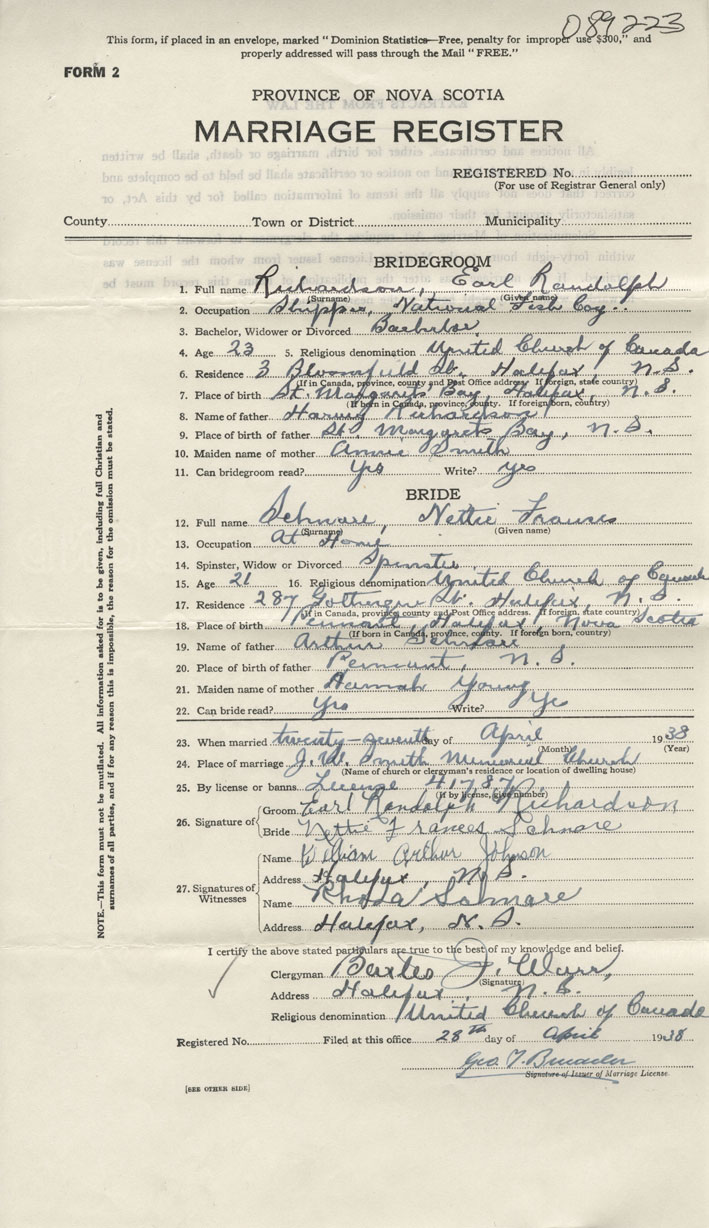 089223
This form, if placed in an envelope, marked "Dominion Statistics—Free, penalty for improper use $300," and
properly addressed will pass through the Mail "FREE."
FORM 2
PROVINCE OF NOVA SCOTIA
MARRIAGE REGISTER
REGISTERED No.
(For use of Registrar General only)
County Town or District Municipality
BRIDEGROOM
1. Full name Richardson, Earl Randolph
(Surname) (Given name)
2. Occupation Shipper, National Fish Coy.
3. Bachelor, Widower or Divorced Bachelor
4. Age 23 5. Religious denomination United Church of Canada
6. Residence 3 Bloomfield St. Halifax, N.S.
(If in Canada, province, county and Post Office address. If foreign, state country)
7. Place of birth St. Margarets Bay, Halifax, N.S.
(If born in Canada, province, county. If foreign born, country)
8. Name of father Harvey Richardson
9. Place of birth of father St. Margarets Bay, N.S.
10. Maiden name of mother Annie Smith
11. Can bridegroom read? Yes Write? Yes
BRIDE
12. Full name Schnare, Nettie Frances
(Surname) (Given name)
13. Occupation At Home
14. Spinster, Widow or Divorced Spinster
15. Age 21 16. Religious denomination United Church of Canada
17. Residence 287 Gottingen St. Halifax, N.S.
(If in Canada, province, county and Post Office address. If foreign, state country)
18. Place of birth Pennant, Halifax, Nova Scotia
(If born in Canada, province, county. If foreign born, country)
19. Name of father Arthur Schnare
20. Place of birth of father Pennant, N.S.
21. Maiden name of mother Hannah Young
22. Can bride read? Yes Write? Yes
23. When married twenty-seventh day of April 1938
(Month) (Year)
24. Place of marriage J. W. Smith Memorial Church
(Name of church or clergyman's residence or location of dwelling house)
25. By license or banns License 41787
(If by license, give number)
26. Signature of
Groom Earl Randolph Richardson
Bride Nettie Frances Schnare
27. Signatures of Witnesses
Name William Arthur Johnson
Address Halifax, N.S.
Name Rhoda Schnare
Address Halifax, N.S.
I certify the above stated particulars are true to the best of my knowledge and belief.
Clergyman J.
(Signature)
Address Halifax, N.S.
Religious denomination United Church of Canada
Registered No. Filed at this office 28th day of April 1938
Geo
Signature of Issuer of Marriage License
[SEE OTHER SIDE]
NOTE.—This form must not be mutilated. All information asked for is to be given, including full Christian and
surnames of all parties, and if for any reason this is impossible, the reason for the omission must be stated.